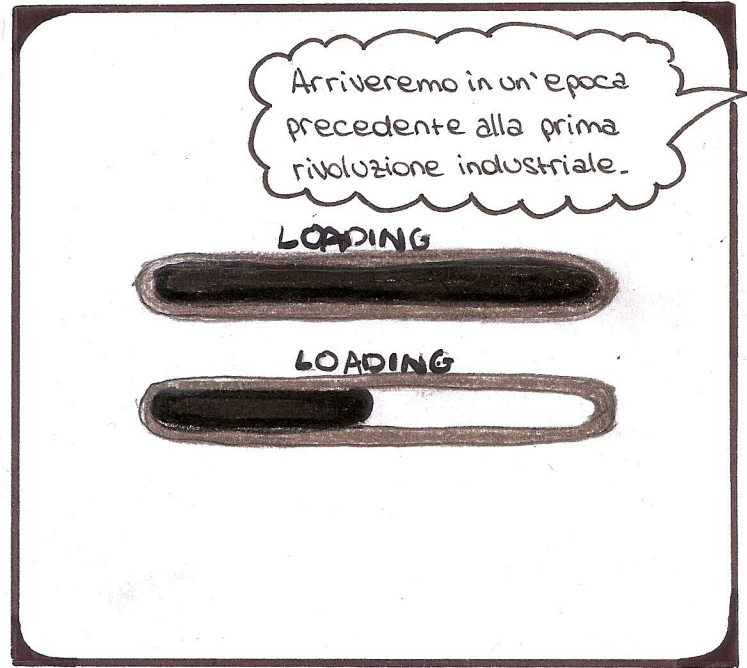 Arriveremo in un'epoca
precedente alla prima
rivoluzione industriale.
LOADING
LOADING